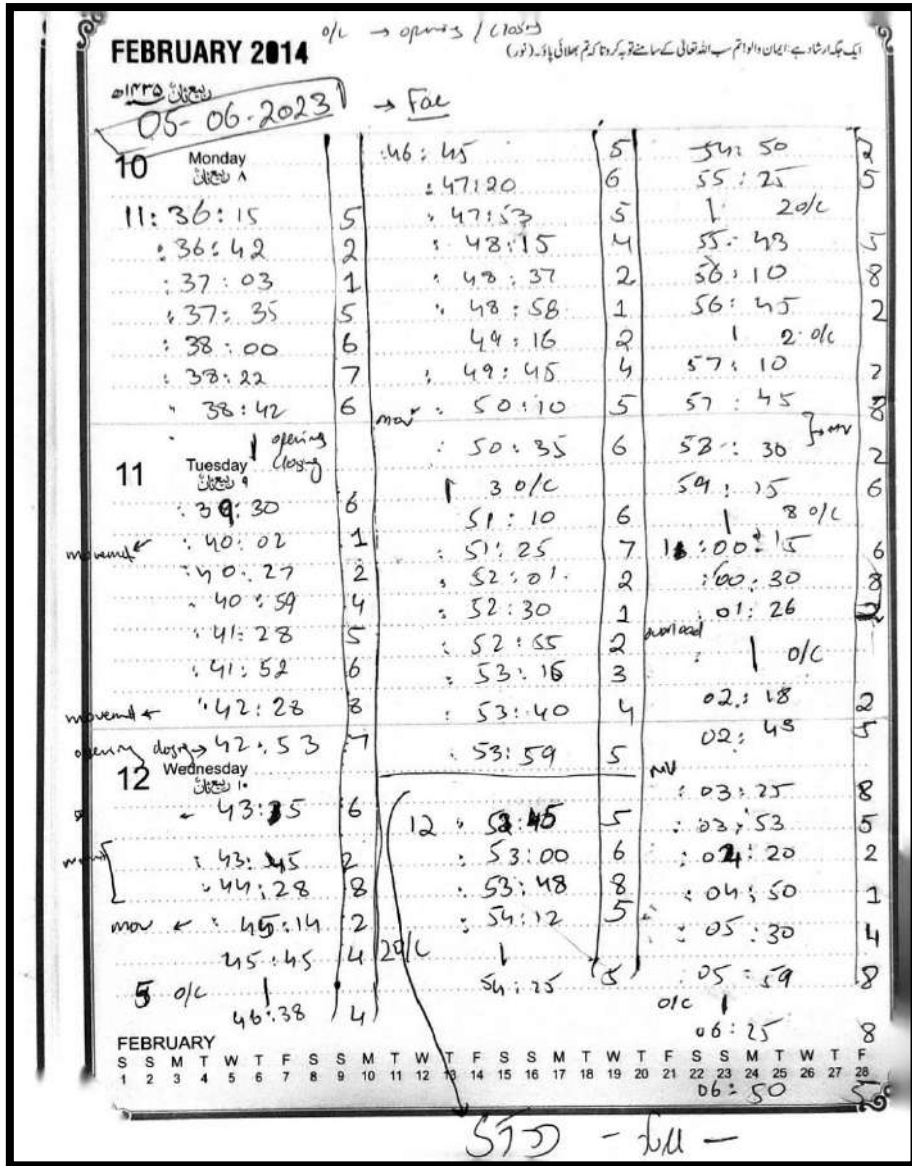 o/c → opening / closing
FEBRUARY 2014
ایک جگہ ارشاد ہے: ایمان والو! تم سب اللہ تعالیٰ کے سامنے توبہ کرو تاکہ تم بھلائی پاؤ۔ (نور)
ربیع الثانی ۱۴۳۵ھ
05-06-2023 → Fac
10 Monday
۸ ربیع الثانی
11:36:15 5
:36:42 2
:37:03 1
:37:35 5
:38:00 6
:38:22 7
38:42 6
opening
closing
11 Tuesday
۹ ربیع الثانی
:39:30 6
:40:02 1
:40:27 2
40:59 4
:41:28 5
:41:52 6
movemt ← 42:28 8
opening closing → 42:53 7
12 Wednesday
۱۰ ربیع الثانی
43:35 6
:43:45 2
44:28 8
mov ← :45:14 2
45:45 4
5 o/c
46:38 4
:46:45 5
:47:20 6
:47:53 5
:48:15 4
:48:37 2
:48:58 1
49:16 2
:49:45 4
mov :50:10 5
:50:35 6
3 o/c
51:10 6
:51:25 7
:52:01 2
:52:30 1
:52:55 2
:53:16 3
:53:40 4
:53:59 5
12 :52:45 5
:53:00 6
:53:48 8
:54:12 5
2 o/c
54:25 5
54:50 2
55:25 5
2 o/c
55:43 5
56:10 8
56:45 2
2 o/c
57:10 2
57:45 8
→ MV
58:30 2
59:15 6
8 o/c
:00:15 6
:00:30 8
:01:26 2
overload
: o/c
02:18 2
02:45 5
MV
:03:25 8
:03:53 5
:04:20 2
:04:50 1
:05:30 4
:05:59 8
o/c
06:25 8
06:50 5
FEBRUARY
S S M T W T F S S M T W T F S S M T W T F S S M T W T F
1 2 3 4 5 6 7 8 9 10 11 12 13 14 15 16 17 18 19 20 21 22 23 24 25 26 27 28